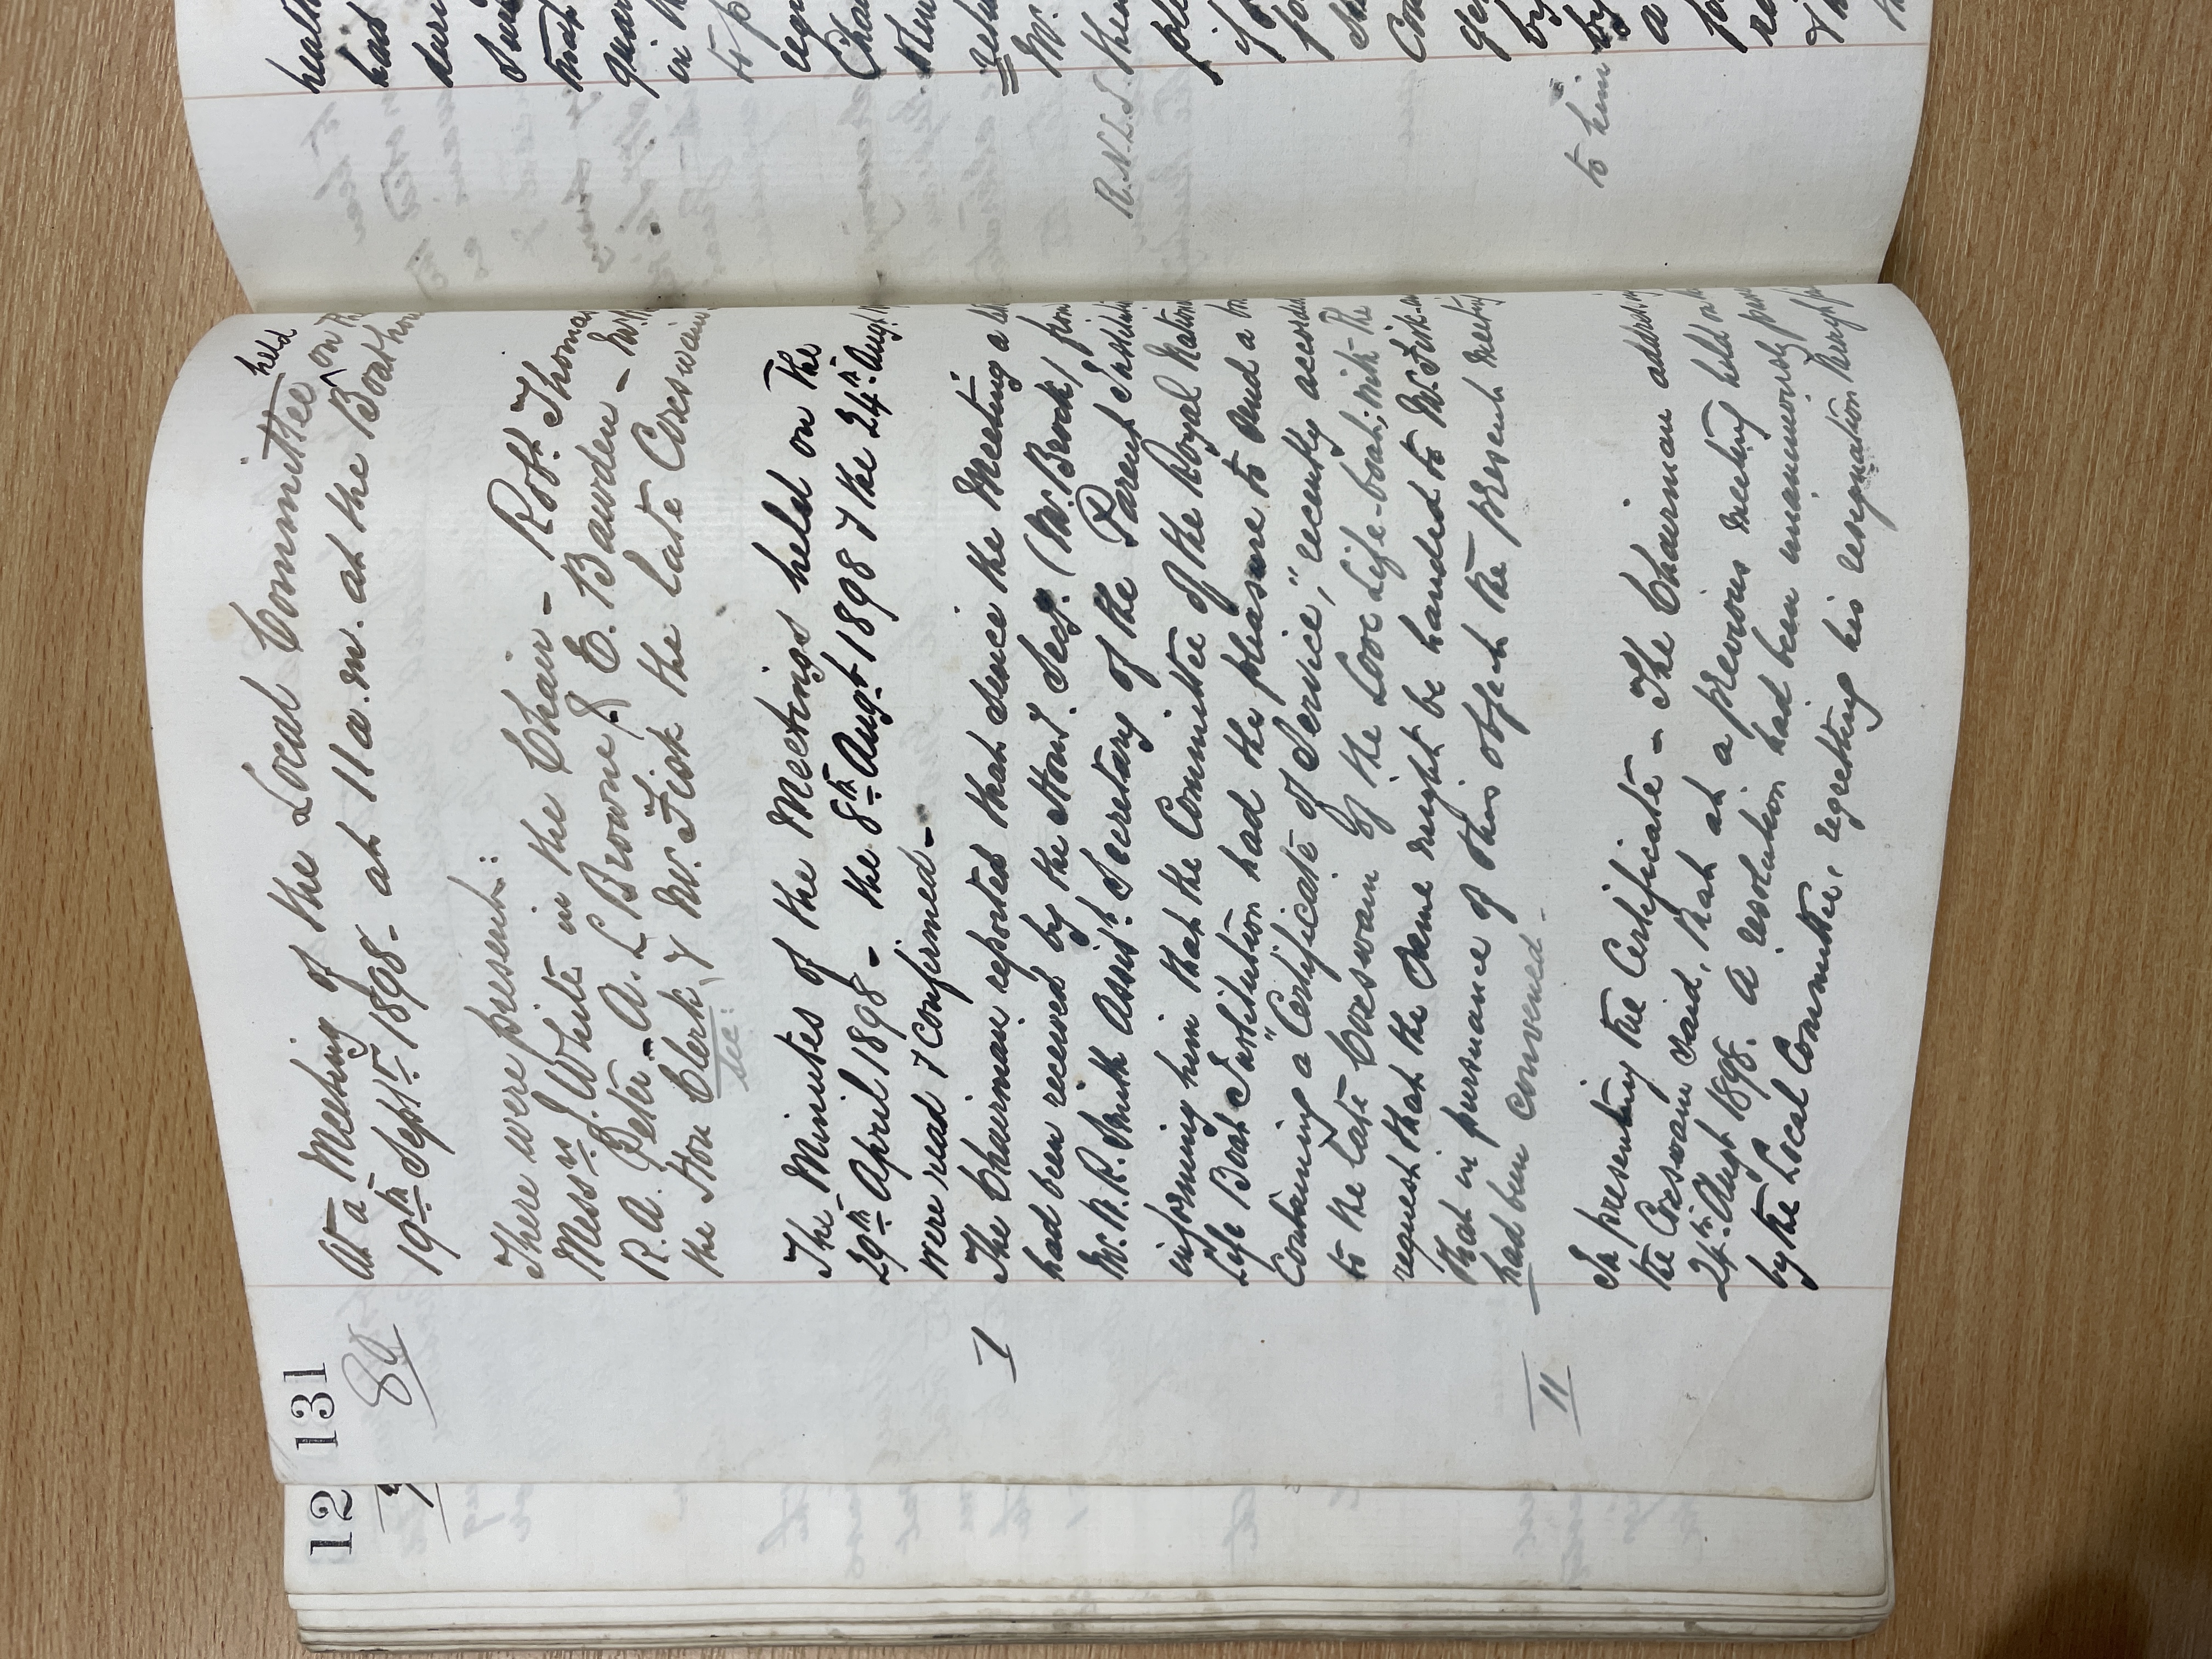 12
131
89
At a Meeting of the Local Committee held on the
19th Septr. 1898 - at 11 a.m. at the Boathou
There were present:
Messrs J. White in the Chair - Robt. Thomas
R. A. Peter - A. L Browne & E. Bawden - Mr.
the Hon Clerk & Mr. Fisk the late Coxswain
Sec:
The Minutes of the Meetings held on the
29th April 1898 - the 8th Augt. 1898 & the 24th Augt
were read & confirmed -
I
The Chairman reported that since the Meeting a le
had been received by the Hony. Secy. (Mr. Brock) from
Mr. W. R. Smith Assist. Secretary of the Parent Institu
informing him that the Committee of the Royal Nation
Life Boat Institution had the pleasure to send a
Containing a "Certificate of Service," recently accorde
to the late Coxswain of the Looe Life-boat; with the
request that the same might be handed to Mr. Fisk
that in pursuance of this object the present meeting
had been convened -
II
In presenting the Certificate - The Chairman addressing
the Coxswain said, that at a previous meeting held on
24th Augt 1898. A resolution had been unanimously pass
by the Local Committee, regretting his resignation
healt
has
duri
that
quar
in th
to p
Mr.
R.N.L.I.
then
ple
if
fo
Co
ge
by
to him
by
a
fo
ra
th